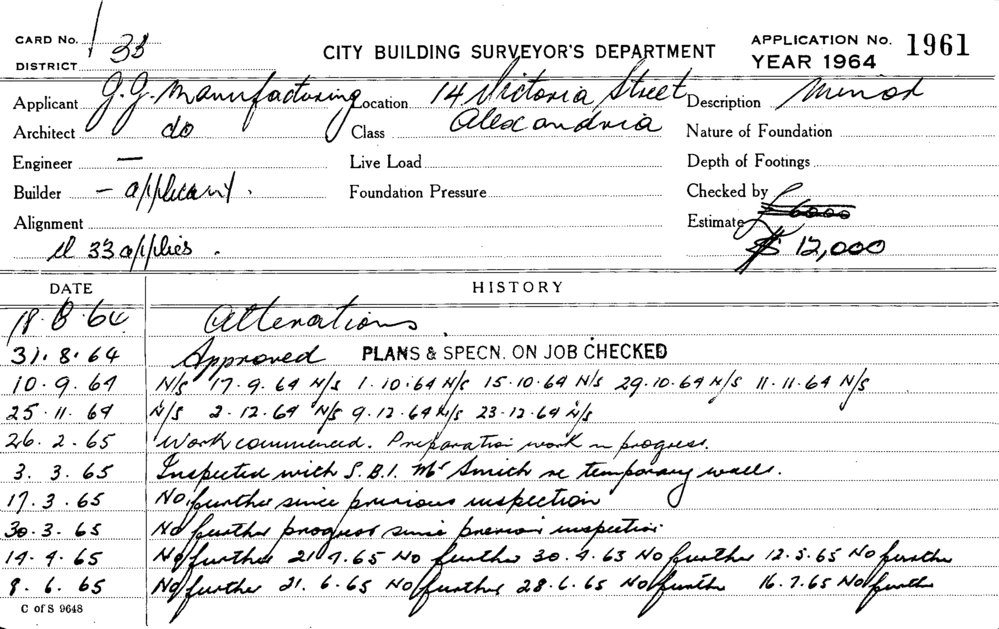 CARD No. 1
DISTRICT 33
CITY BUILDING SURVEYOR'S DEPARTMENT
APPLICATION No. 1961
YEAR 1964
Applicant J.J. Manufacturing Location 14 Victoria Street Description Minor
Architect do Class Alexandria Nature of Foundation
Engineer — Live Load Depth of Footings
Builder - applicant. Foundation Pressure Checked by
Alignment Estimate £6000
cl 33 applies. $ 12,000
DATE HISTORY
18.8.64 Alterations.
31.8.64 Approved PLANS & SPECN. ON JOB CHECKED
10.9.64 N/S 17.9.64 N/S 1.10.64 N/S 15.10.64 N/S 29.10.64 N/S 11.11.64 N/S
25.11.64 N/S 2.12.64 N/S 9.12.64 N/S 23.12.64 N/S
26.2.65 Work commenced. Preparation work in progress.
3.3.65 Inspected with S.B.I. Mr Smith re temporary walls.
17.3.65 No further since previous inspection
30.3.65 No further progress since previous inspection
14.4.65 No further 21.4.65 No further 30.4.65 No further 12.5.65 No further
8.6.65 No further 21.6.65 No further 28.6.65 No further 16.7.65 No further
C of S 9648